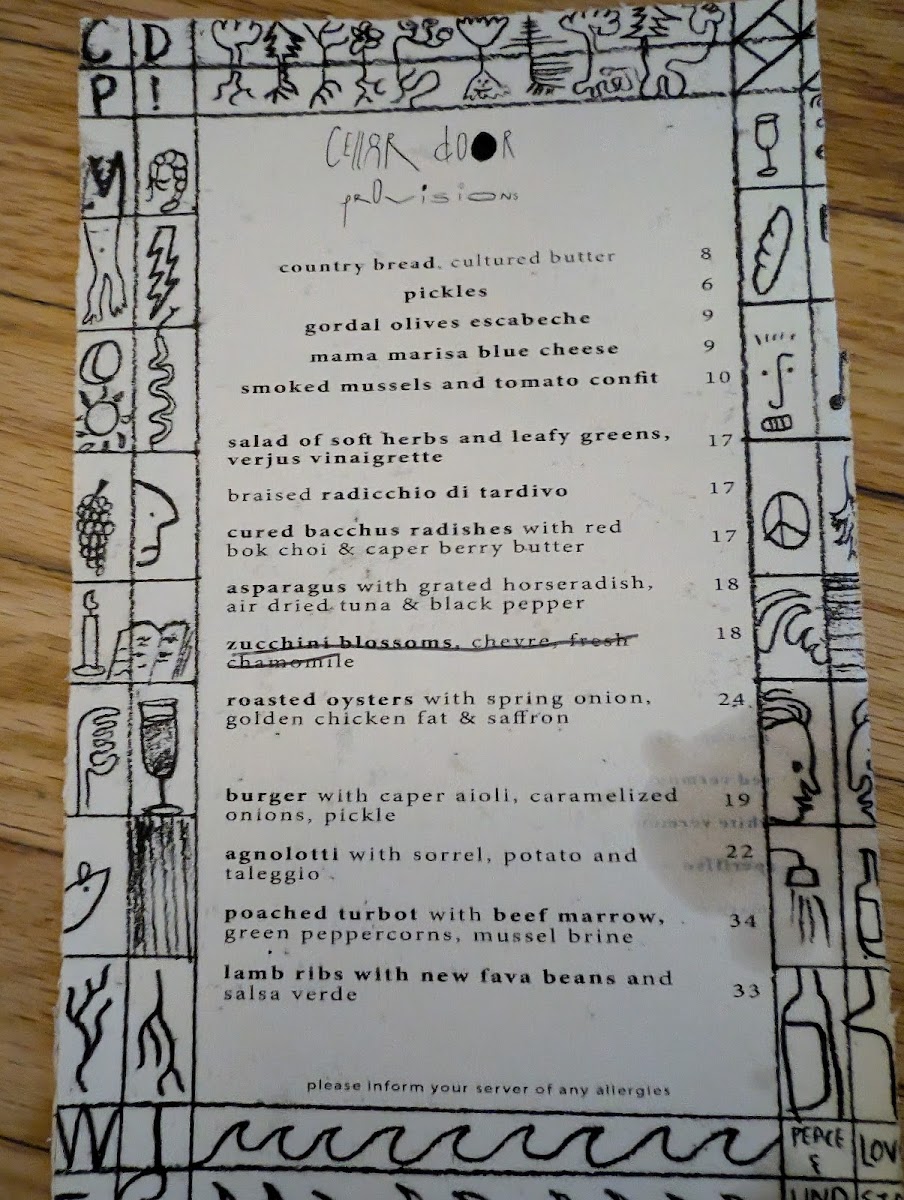 C D
P !
CELLAR dOOR
prOvisiONs
country bread, cultured butter 8
pickles 6
gordal olives escabeche 9
mama marisa blue cheese 9
smoked mussels and tomato confit 10
salad of soft herbs and leafy greens, 17
verjus vinaigrette
braised radicchio di tardivo 17
cured bacchus radishes with red 17
bok choi & caper berry butter
asparagus with grated horseradish, 18
air dried tuna & black pepper
zucchini blossoms, chevre, fresh 18
chamomile
roasted oysters with spring onion, 24
golden chicken fat & saffron
burger with caper aioli, caramelized 19
onions, pickle
agnolotti with sorrel, potato and 22
taleggio
poached turbot with beef marrow, 34
green peppercorns, mussel brine
lamb ribs with new fava beans and 33
salsa verde
please inform your server of any allergies
W I
PEACE LOV
&